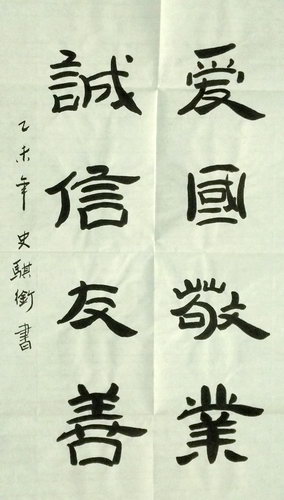 爱國敬業
誠信友善
乙未年 史騏銜書